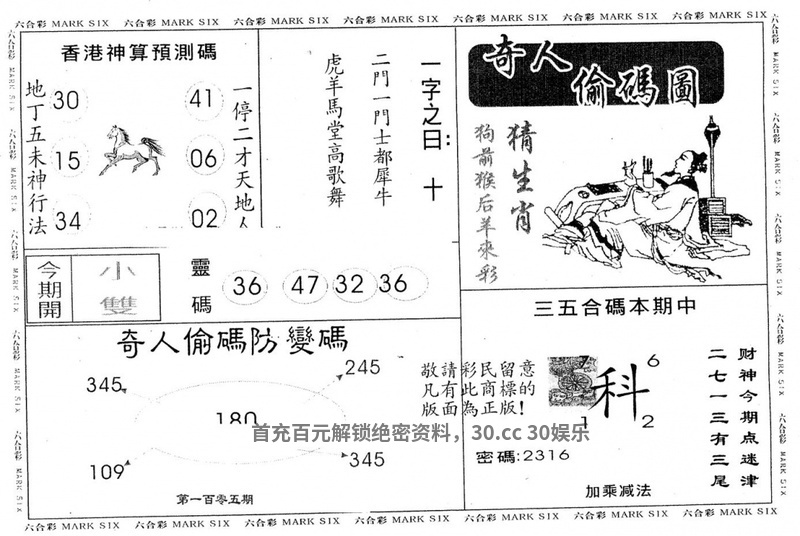 六合彩 MARK SIX 六合彩 MARK SIX 六合彩 MARK SIX 六合彩 MARK SIX 六合彩 MARK SIX 六合彩 MARK SIX 六合彩 MARK SIX
香港神算預測碼
地丁五未神行法
30
15
34
41
06
02
一停二才天地人
虎羊馬堂高歌舞
二門一門士都犀牛
一字之曰: 十
奇人偷碼圖
猜生肖
狗前猴后羊來彩
今期開
小雙
靈碼
36
47
32
36
奇人偷碼防變碼
345
245
180
109
345
第一百零五期
三五合碼本期中
敬請彩民留意
凡有此商標的
版面為正版!
7
科
6
1
2
密碼:2316
加乘减法
财神今期点迷津
二七一三有三尾
首充百元解锁绝密资料，30.cc 30娱乐
六合彩 MARK SIX 六合彩 MARK SIX 六合彩 MARK SIX 六合彩 MARK SIX 六合彩 MARK SIX 六合彩 MARK SIX 六合彩 MARK SIX